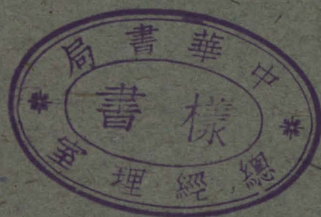 中華書局
樣書
總經理室